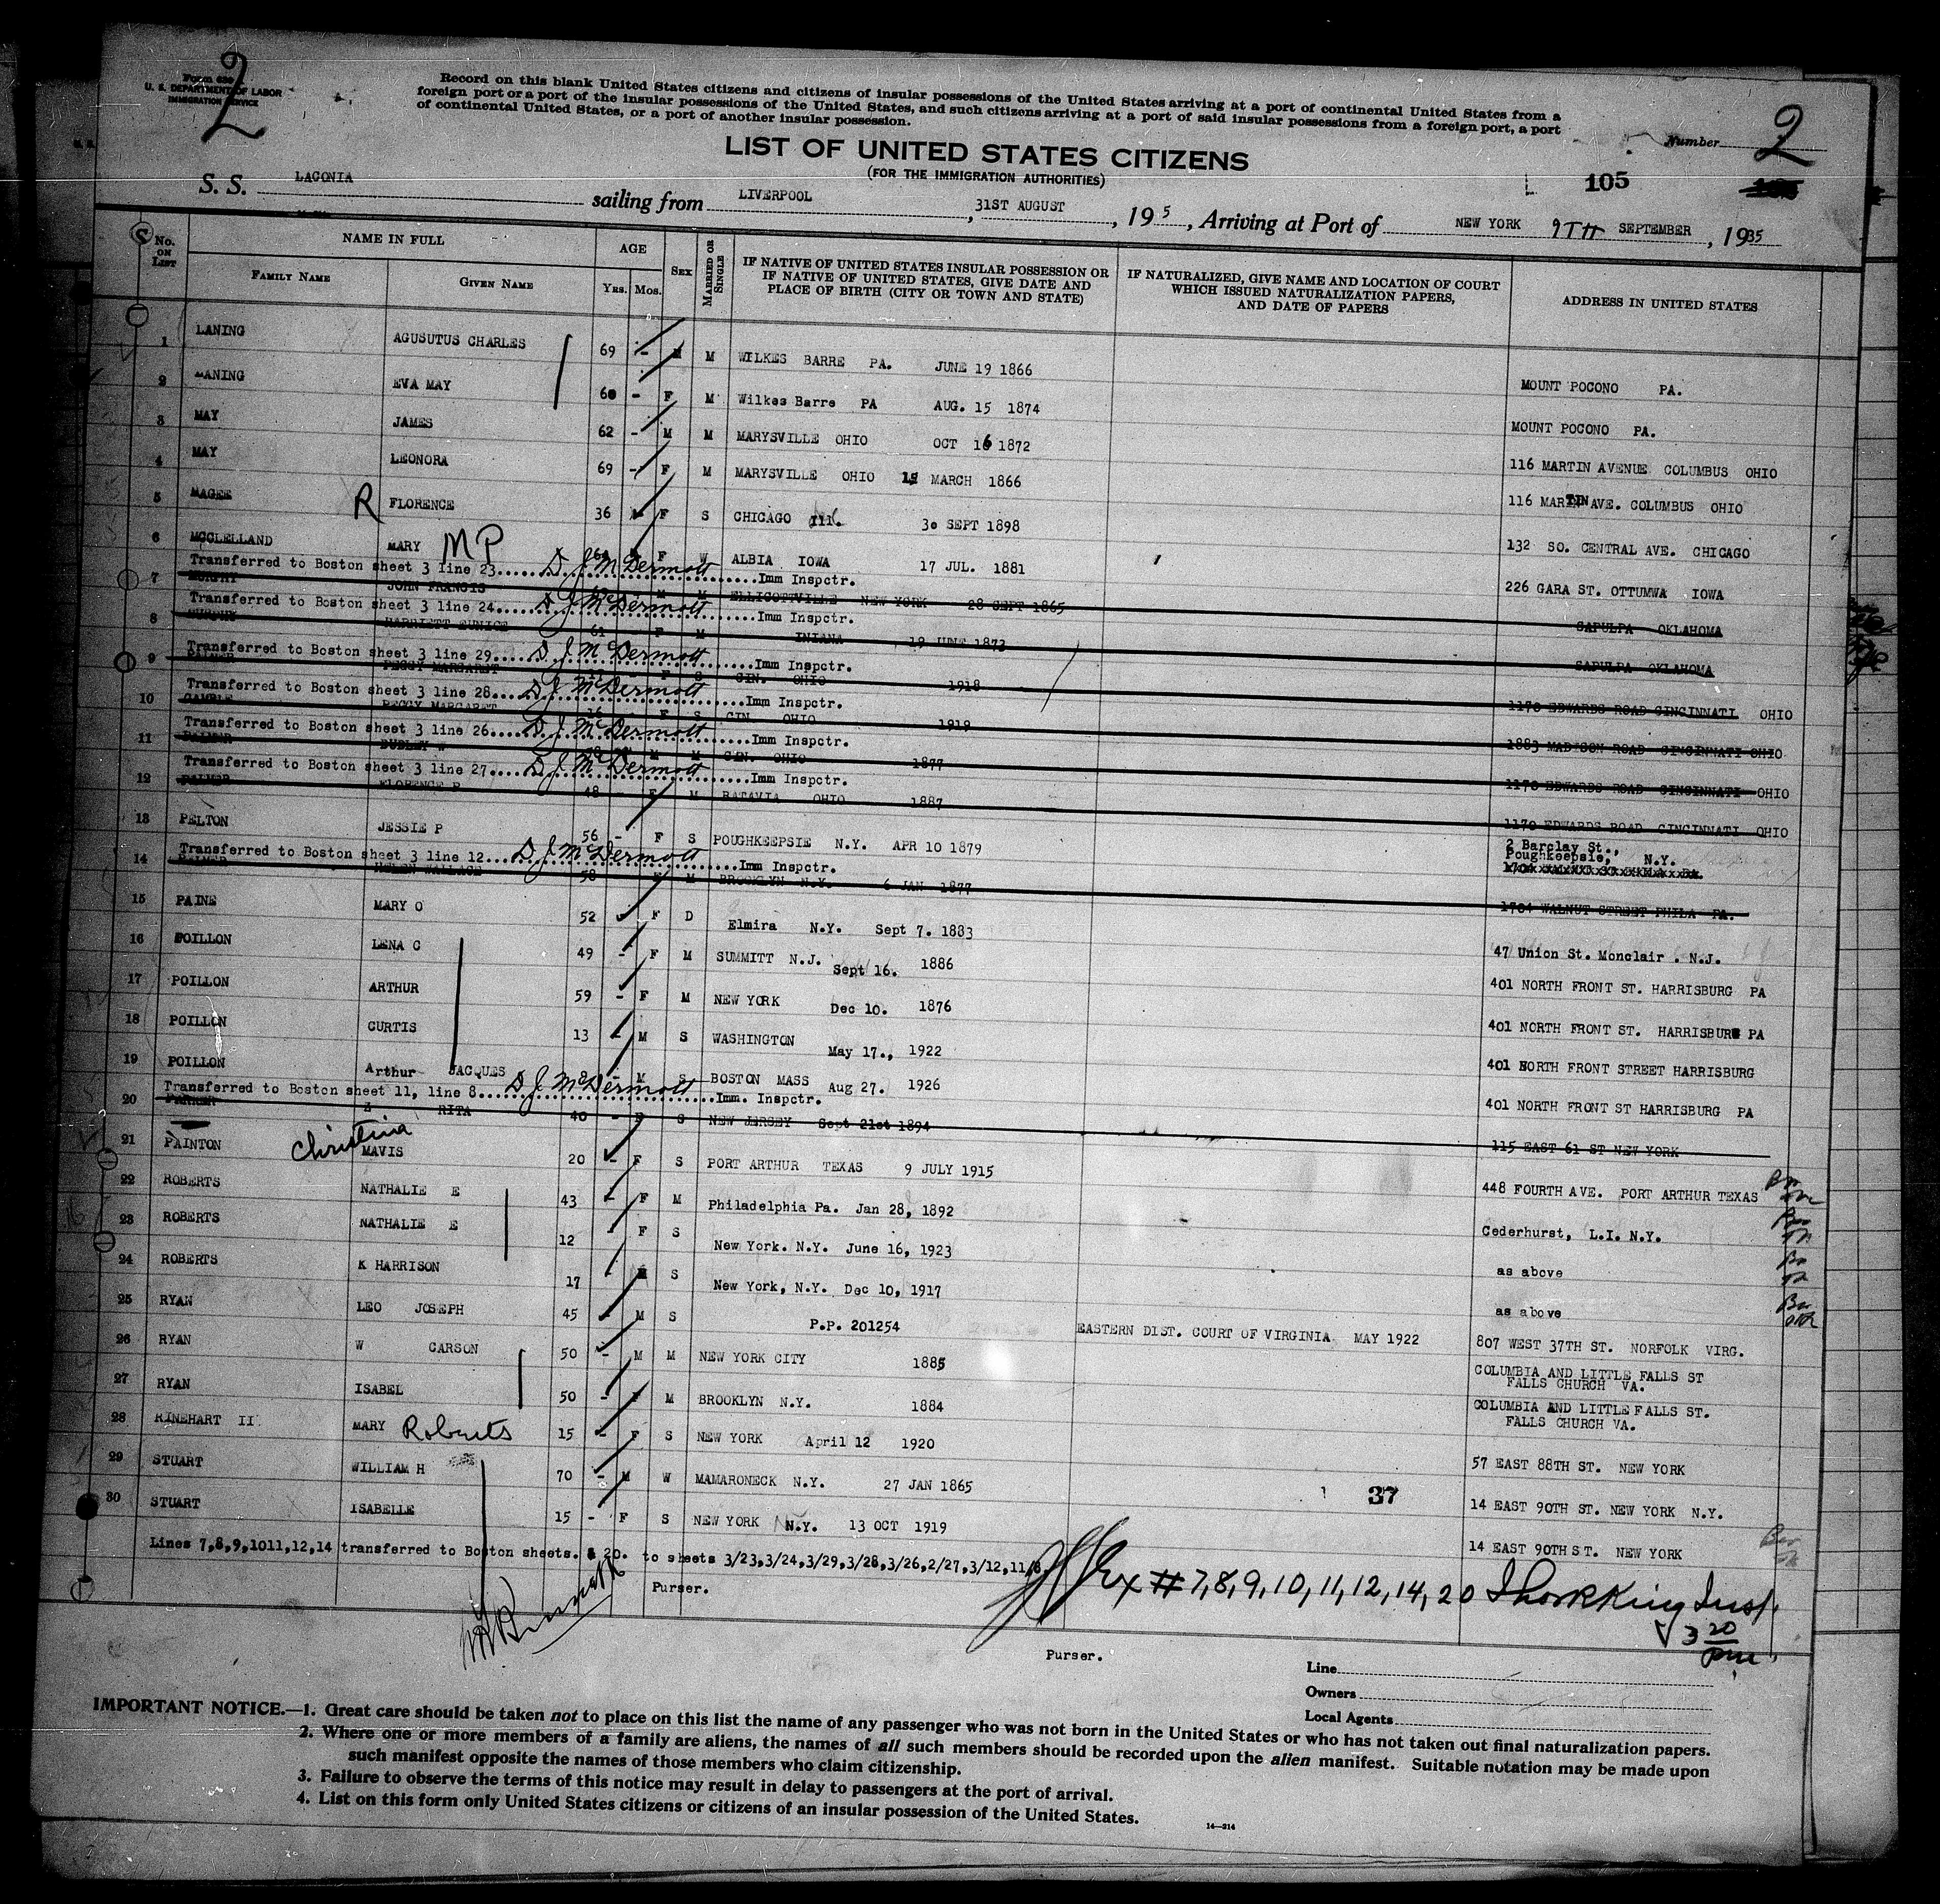 2
Form 630
U. S. DEPARTMENT OF LABOR
IMMIGRATION SERVICE
Record on this blank United States citizens and citizens of insular possessions of the United States arriving at a port of continental United States from a
foreign port or a port of the insular possessions of the United States, and such citizens arriving at a port of said insular possessions from a foreign port, a port
of continental United States, or a port of another insular possession.
Number 2
LIST OF UNITED STATES CITIZENS
(FOR THE IMMIGRATION AUTHORITIES)
105
S. S. LACONIA sailing from LIVERPOOL, 31ST AUGUST, 19 5, Arriving at Port of NEW YORK 9TH SEPTEMBER, 1935
No. on List NAME IN FULL AGE SEX MARRIED OR SINGLE IF NATIVE OF UNITED STATES INSULAR POSSESSION OR IF NATIVE OF UNITED STATES, GIVE DATE AND PLACE OF BIRTH (CITY OR TOWN AND STATE) IF NATURALIZED, GIVE NAME AND LOCATION OF COURT WHICH ISSUED NATURALIZATION PAPERS, AND DATE OF PAPERS ADDRESS IN UNITED STATES
FAMILY NAME GIVEN NAME YRS. MOS.
1 LANING AGUSUTUS CHARLES 69 - M M WILKES BARRE PA. JUNE 19 1866 MOUNT POCONO PA.
2 LANING EVA MAY 60 - F M Wilkes Barre PA AUG. 15 1874 MOUNT POCONO PA.
3 MAY JAMES 62 - M M MARYSVILLE OHIO OCT 16 1872 116 MARTIN AVENUE COLUMBUS OHIO
4 MAY LEONORA 69 - F M MARYSVILLE OHIO MARCH 1866 116 MARTIN AVE. COLUMBUS OHIO
5 MAGEE R FLORENCE 36 F S CHICAGO Ill. 30 SEPT 1898 132 SO. CENTRAL AVE. CHICAGO
6 MCCLELLAND MARY MP F W ALBIA IOWA 17 JUL. 1881 226 GARA ST. OTTUMWA IOWA
Transferred to Boston sheet 3 line 23 D J McDermott Imm Inspctr.
7 MURPHY JOHN FRANCIS M M ELLICOTTVILLE NEW YORK 28 SEPT 1865 SAPULPA OKLAHOMA
Transferred to Boston sheet 3 line 24 D J McDermott Imm Inspctr.
8 MURPHY HARRIETT EUNICE 61 - F M INIANA 19 JUNE 1873 SAPULPA OKLAHOMA
Transferred to Boston sheet 3 line 29 D J McDermott Imm Inspctr.
9 PALMER PEGGY MARGARET F S CIN. OHIO 1918 1170 EDWARDS ROAD CINCINNATI OHIO
Transferred to Boston sheet 3 line 28 D J McDermott Imm Inspctr.
10 GAMBLE PEGGY MARGARET 16 - F S CIN. OHIO 1919 1883 MADISON ROAD CINCINNATI OHIO
Transferred to Boston sheet 3 line 26 D J McDermott Imm Inspctr.
11 PALMER DUDLEY W M M CIN. OHIO 1877 1170 EDWARDS ROAD CINCINNATI OHIO
Transferred to Boston sheet 3 line 27 D J McDermott Imm Inspctr.
12 PALMER FLORENCE P 48 - F M BATAVIA OHIO 1887 1170 EDWARDS ROAD CINCINNATI OHIO
13 PELTON JESSIE P 56 - F S POUGHKEEPSIE N.Y. APR 10 1879 2 Barclay St., Poughkeepsie, N.Y.
Transferred to Boston sheet 3 line 12 D J McDermott Imm Inspctr.
14 PALMER HELEN WALLACE 58 F M BROOKLYN N.Y. 6 JAN 1877 1704 WALNUT STREET PHILA PA.
15 PAINE MARY O 52 F D Elmira N.Y. Sept 7. 1883 47 Union St. Monclair . N.J.
16 POILLON LENA C 49 - F M SUMMITT N.J. Sept 16. 1886 401 NORTH FRONT ST. HARRISBURG PA
17 POILLON ARTHUR 59 - F M NEW YORK Dec 10. 1876 401 NORTH FRONT ST. HARRISBURG PA
18 POILLON CURTIS 13 - M S WASHINGTON May 17., 1922 401 NORTH FRONT STREET HARRISBURG
19 POILLON Arthur JACQUES 8 - M S BOSTON MASS Aug 27. 1926 401 NORTH FRONT ST HARRISBURG PA
Transferred to Boston sheet 11, line 8 D J McDermott Imm. Inspctr.
20 PARKER RITA 40 - F S NEW JERSEY Sept 21st 1894 115 EAST 61 ST NEW YORK
21 PAINTON Christina MAVIS 20 - F S PORT ARTHUR TEXAS 9 JULY 1915 448 FOURTH AVE. PORT ARTHUR TEXAS
22 ROBERTS NATHALIE E 43 - F M Philadelphia Pa. Jan 28, 1892 Cederhurst, L.I. N.Y.
23 ROBERTS NATHALIE E 12 F S New York. N.Y. June 16, 1923 as above
24 ROBERTS K HARRISON 17 - M S New York, N.Y. Dec 10, 1917 as above
25 RYAN LEO JOSEPH 45 M S P.P. 201254 EASTERN DIST. COURT OF VIRGINIA MAY 1922 807 WEST 37TH ST. NORFOLK VIRG.
26 RYAN W CARSON 50 - M M NEW YORK CITY 1885 COLUMBIA AND LITTLE FALLS ST FALLS CHURCH VA.
27 RYAN ISABEL 50 - F M BROOKLYN N.Y. 1884 COLUMBIA AND LITTLE FALLS ST. FALLS CHURCH VA.
28 RINEHART II MARY Roberts 15 - F S NEW YORK April 12 1920 57 EAST 88TH ST. NEW YORK
29 STUART WILLIAM H 70 - M W MAMARONECK N.Y. 27 JAN 1865 14 EAST 90TH ST. NEW YORK N.Y.
37
30 STUART ISABELLE 15 - F S NEW YORK N.Y. 13 OCT 1919 14 EAST 90TH ST. NEW YORK
Lines 7,8,9,1011,12,14 transferred to Boston sheets. & 20. to sheets 3/23,3/24,3/29,3/28,3/26,2/27,3/12,11/8
Purser.
Ex # 7, 8, 9, 10, 11, 12, 14, 20
3 20 pm
Purser.
Line
Owners
Local Agents
IMPORTANT NOTICE.—1. Great care should be taken not to place on this list the name of any passenger who was not born in the United States or who has not taken out final naturalization papers.
2. Where one or more members of a family are aliens, the names of all such members should be recorded upon the alien manifest. Suitable notation may be made upon
such manifest opposite the names of those members who claim citizenship.
3. Failure to observe the terms of this notice may result in delay to passengers at the port of arrival.
4. List on this form only United States citizens or citizens of an insular possession of the United States.
14—214